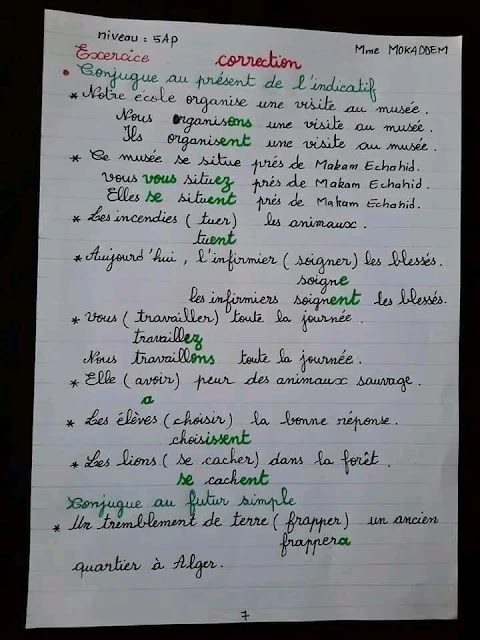 niveau : 5AP
Mme MOKADDEM
Exercice correction
• Conjugue au présent de l'indicatif
* Notre école organise une visite au musée.
Nous organisons une visite au musée.
Ils organisent une visite au musée.
* Ce musée se situe prés de Makam Echahid.
Vous vous situez prés de Makam Echahid.
Elles se situent prés de Makam Echahid.
* Les incendies ( tuer ) les animaux .
tuent
* Aujourd'hui , l'infirmier ( soigner ) les blessés.
soigne
les infirmiers soignent les blessés.
* Vous ( travailler ) toute la journée .
travaillez
Nous travaillons toute la journée .
* Elle ( avoir ) peur des animaux sauvage .
a
* Les élèves ( choisir ) la bonne réponse.
choisissent
* Les lions ( se cacher ) dans la forêt .
se cachent
Conjugue au futur simple
* Un tremblement de terre ( frapper ) un ancien
frappera
quartier à Alger.
7